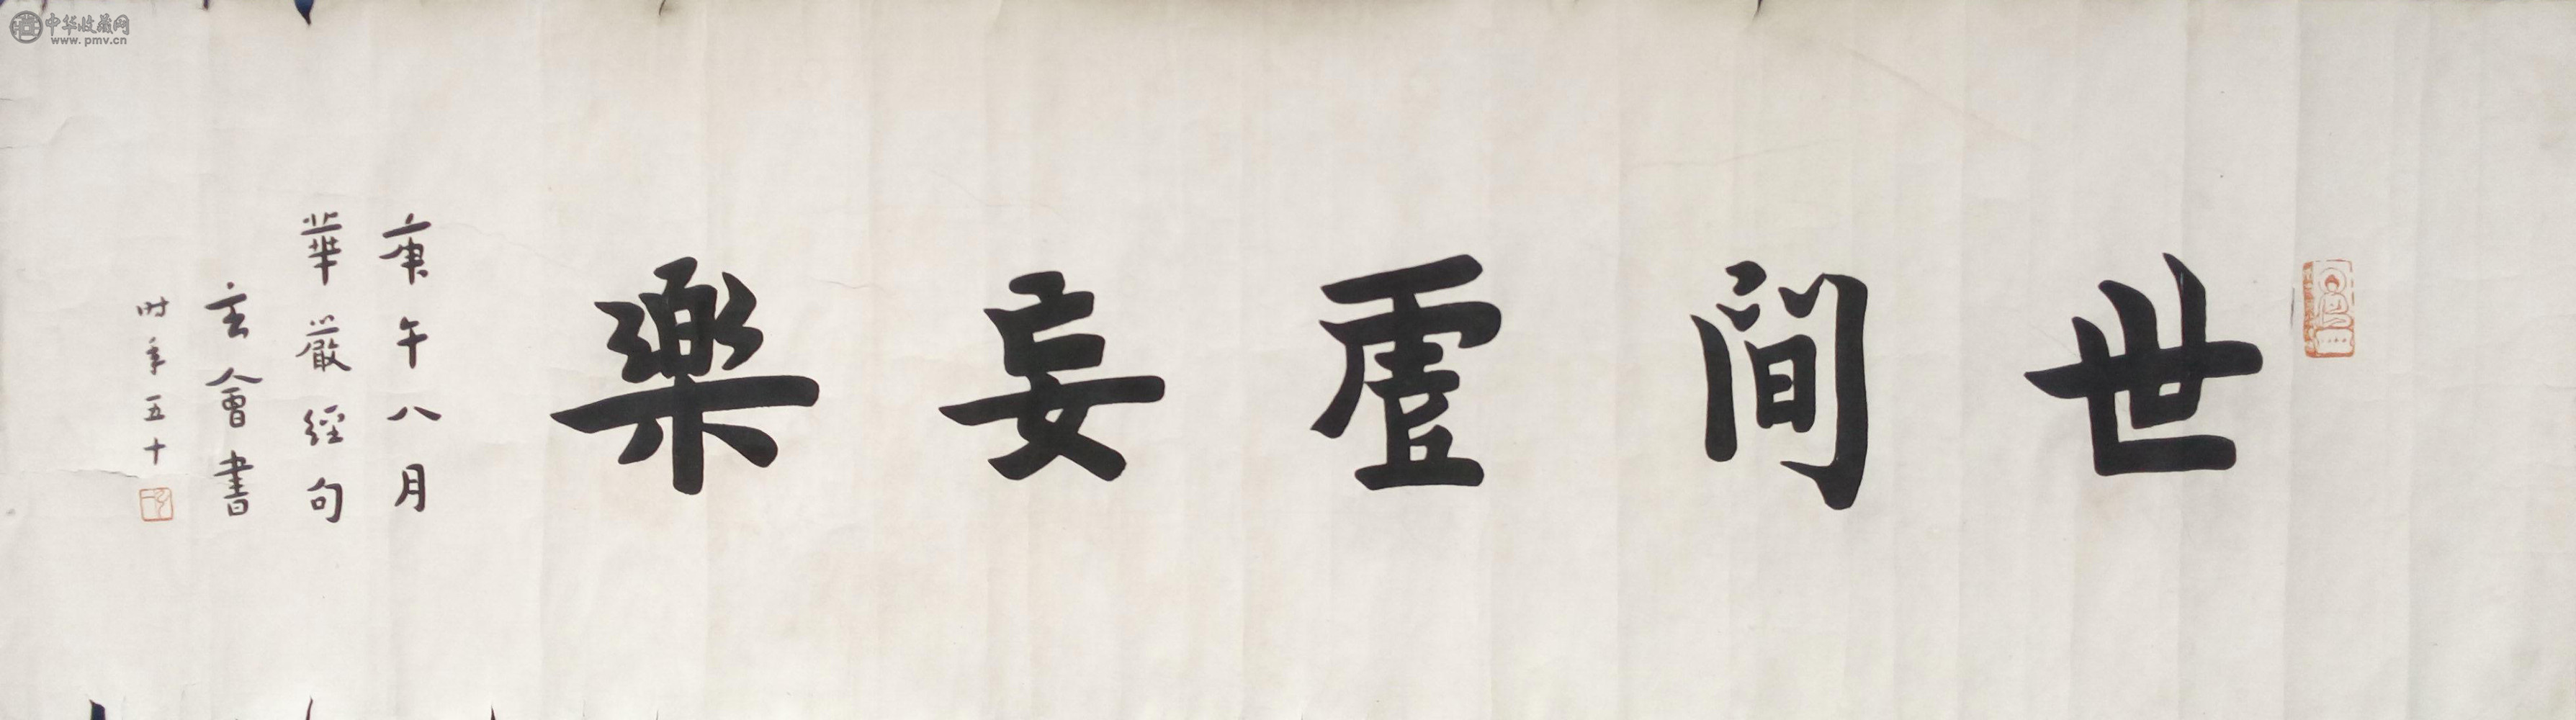 世間虛妄樂
庚午八月
華嚴經句
玄會書
时年五十
中华收藏网
www.pmv.cn